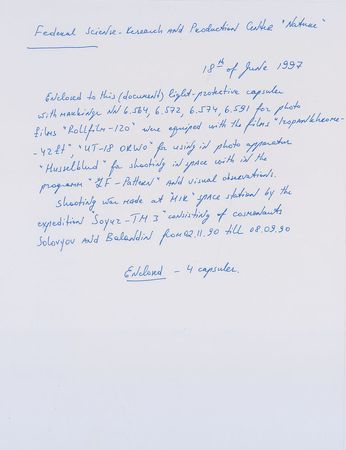 Federal Science-Research and Production Centre "Nature"
18th of June 1997
Enclosed to this (document) light-protective capsules
with markings NN 6.564, 6.572, 6.574, 6.591 for photo
films "Rollfilm-120" were equiped with the films "Izopankhrome-
-42Lt", "UT-18 ORWO" for using in photo apparatus
"Husselblud" for shooting in space with in the
programm "GF-Pattern" and visual observations.
Shooting was made at "MIR" space station by the
expedition "Soyuz-TM 3" consisting of cosmonauts
Solovyov and Balandin from 02.11.90 till 08.09.90
Enclosed - 4 capsules.